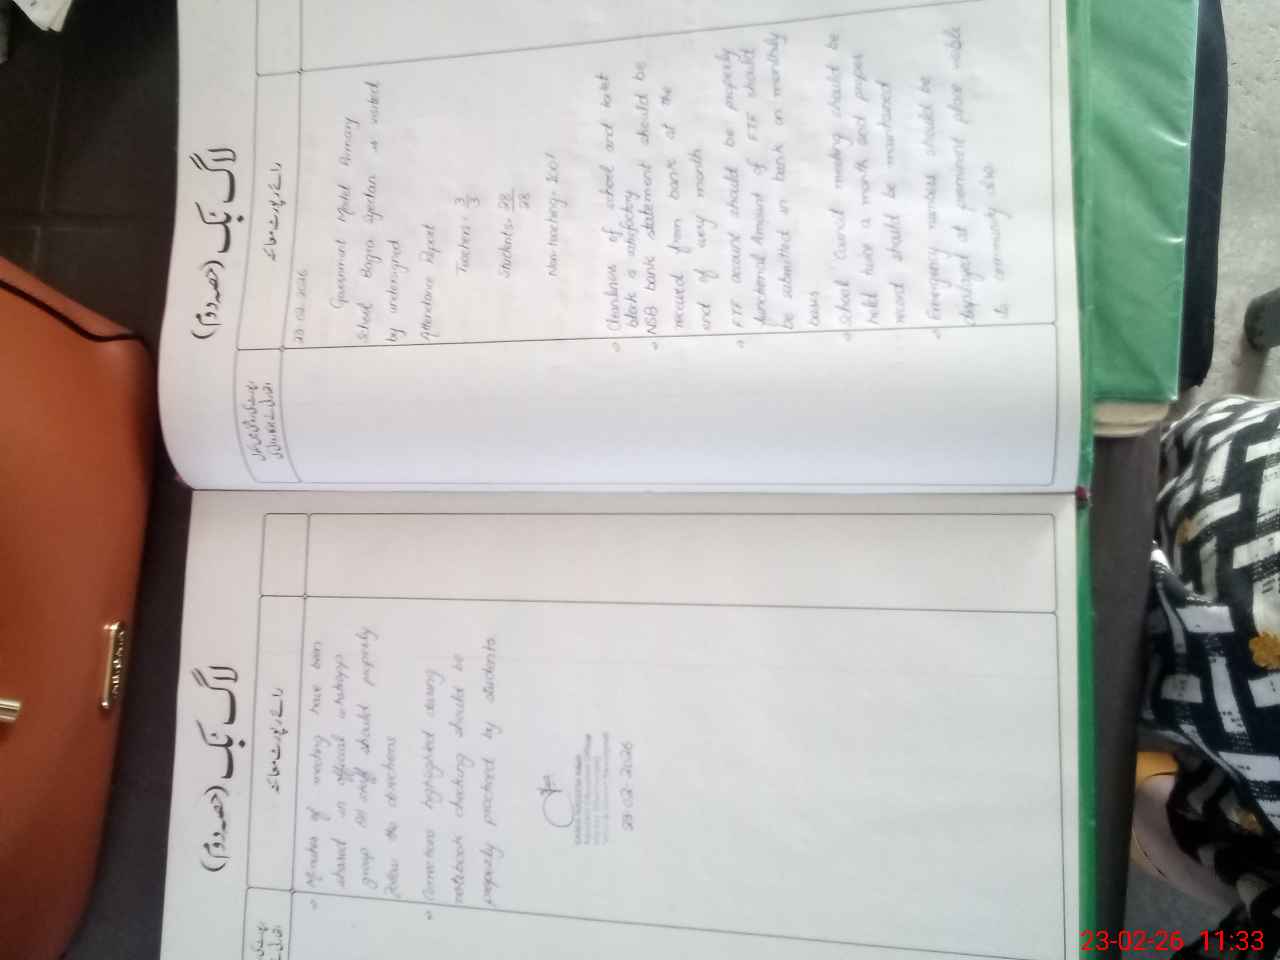 لاگ بک (حصہ دوم)
رائے رپورٹ معائنہ
23.02.2026
Government Model Primary
School Bagra is visited
by undersigned
Attendance Report
Teachers = 3/3
Students = 28/28
Non-teaching =
Cleanliness of school and toilet
block is satisfactory
NSB bank statement should be
received from bank at the
end of every month
FTF account should be properly
functional Amount of FTF should
be submitted in bank on monthly
basis
School Council meeting should be
held twice a month and proper
record should be maintained
Emergency numbers should be
displayed at prominent place visible
to community also
لاگ بک (حصہ دوم)
رائے رپورٹ معائنہ
Minutes of meeting have been
shared in official whatsapp
group All staff should properly
follow the directions
Corrections highlighted during
notebook checking should be
properly practiced by students
23-02-2026
23-02-26 11:33